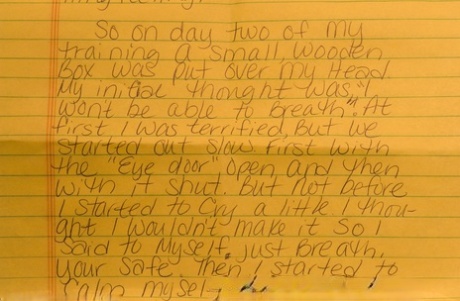 So on day two of my
training a small, wooden
Box was put over my Head
My initial thought was, "I
won't be able to breath". At
first I was terrified, But we
started out slow. First with
the "Eye door" Open and then
with it shut. But not before
I started to Cry a little. I thou-
ght I wouldn't make it so I
said to Myself, just Breath,
your safe. Then I started to
Calm mysel-